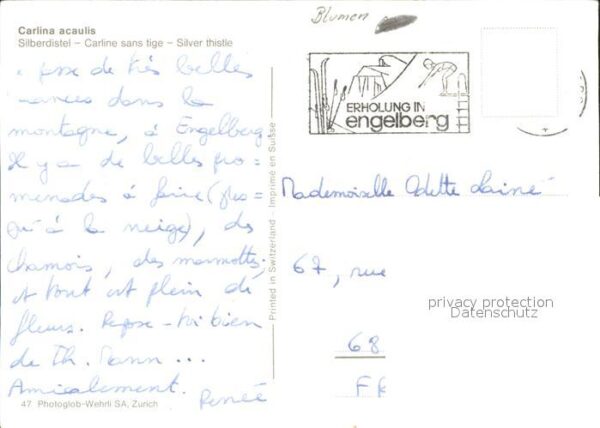 Carlina acaulis
Silberdistel – Carline sans tige – Silver thistle
Blumen
ERHOLUNG IN
engelberg
passe de très belles
dans la
montagne, à Engelberg.
Il y a de belles pro=
menades à faire (jus=
qu'à la neige), des
chamois, des marmottes,
et tout est plein de
fleurs. Repose-toi bien
de Th. Mann ...
Amicalement.
Renée
Printed in Switzerland – Imprimé en Suisse
Mademoiselle Odette Lainé
67, rue
privacy protection
Datenschutz
68
47 Photoglob-Wehrli SA, Zurich